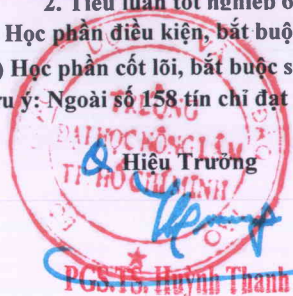 2. Tiểu luận tốt nghiệp
Học phần điều kiện, bắt buộ
) Học phần cốt lõi, bắt buộc s
ưu ý: Ngoài số 158 tín chỉ đạt
TRƯỜNG
ĐẠI HỌC NÔNG LÂM
TP. HỒ CHÍ MINH
Hiệu Trưởng
PGS.TS. Huỳnh Thanh